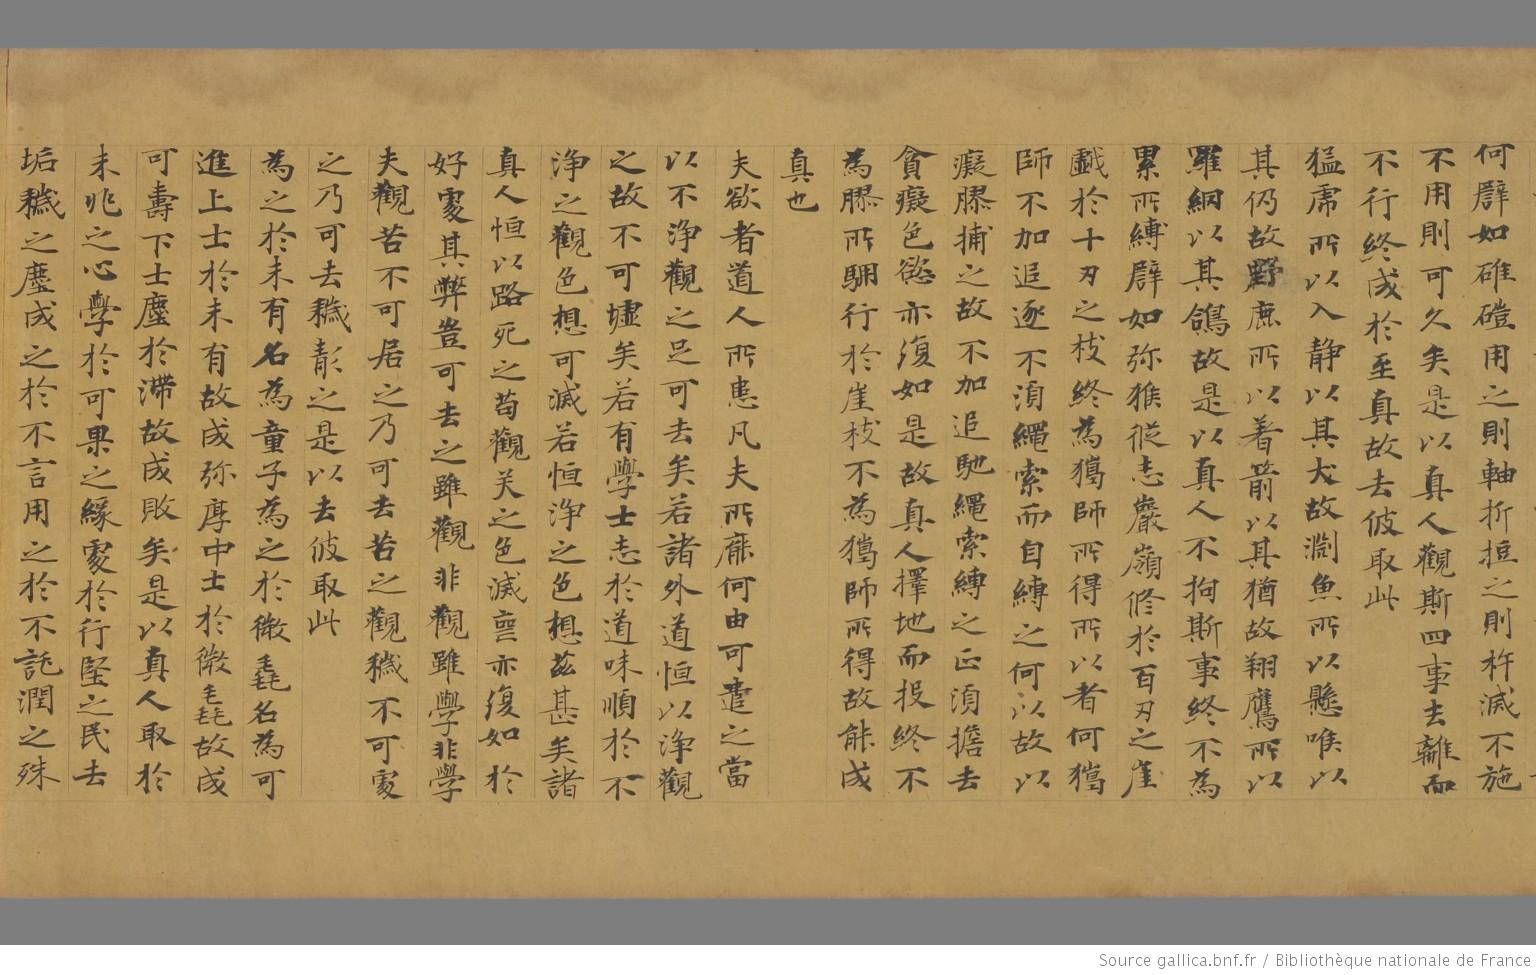 何辟如碓磑用之則軸折拒之則杵滅不施
不用則可久矣是以真人觀斯四事去離而
不行終成於至真故去彼取此
猛虎所以入静以其犬故淵魚所以懸唯以
其仍故野鹿所以着箭以其猶故翔鷹所以
羅網以其鴿故是以真人不拘斯事終不為
累所縛辟如弥猴從志巖嶺俢於百刃之崖
戲於十刃之枝終為獵師所得所以者何獵
師不加追逐不湏繩索而自縛之何以故以
癡膠捕之故不加追馳繩索縛之正湏擔去
貪癡色慾亦復如是故真人擇地而投終不
為膠所駰行於崖枝不為獵師所得故能成
真也
夫欲者道人所患凡夫所靡何由可遣之當
以不浄觀之足可去矣若諸外道恒以浄觀
之故不可墟矣若有學士志於道味順於不
浄之觀色想可滅若恒浄之色想茲甚矣諸
真人恒以路死之苟觀美之色滅亶亦復如於
好䖏其弊豈可去之雖觀非觀雖學非學
夫觀苦不可居之乃可去苦之觀穢不可䖏
之乃可去穢彰之是以去彼取此
為之於未有名為童子為之於微毳名為可
進上士於未有故成弥厚中士於微毳故成
可壽下士塵於滯故成敗矣是以真人取於
未兆之心學於可果之緣䖏於行堅之民去
垢穢之塵成之於不言用之於不訑潤之殊